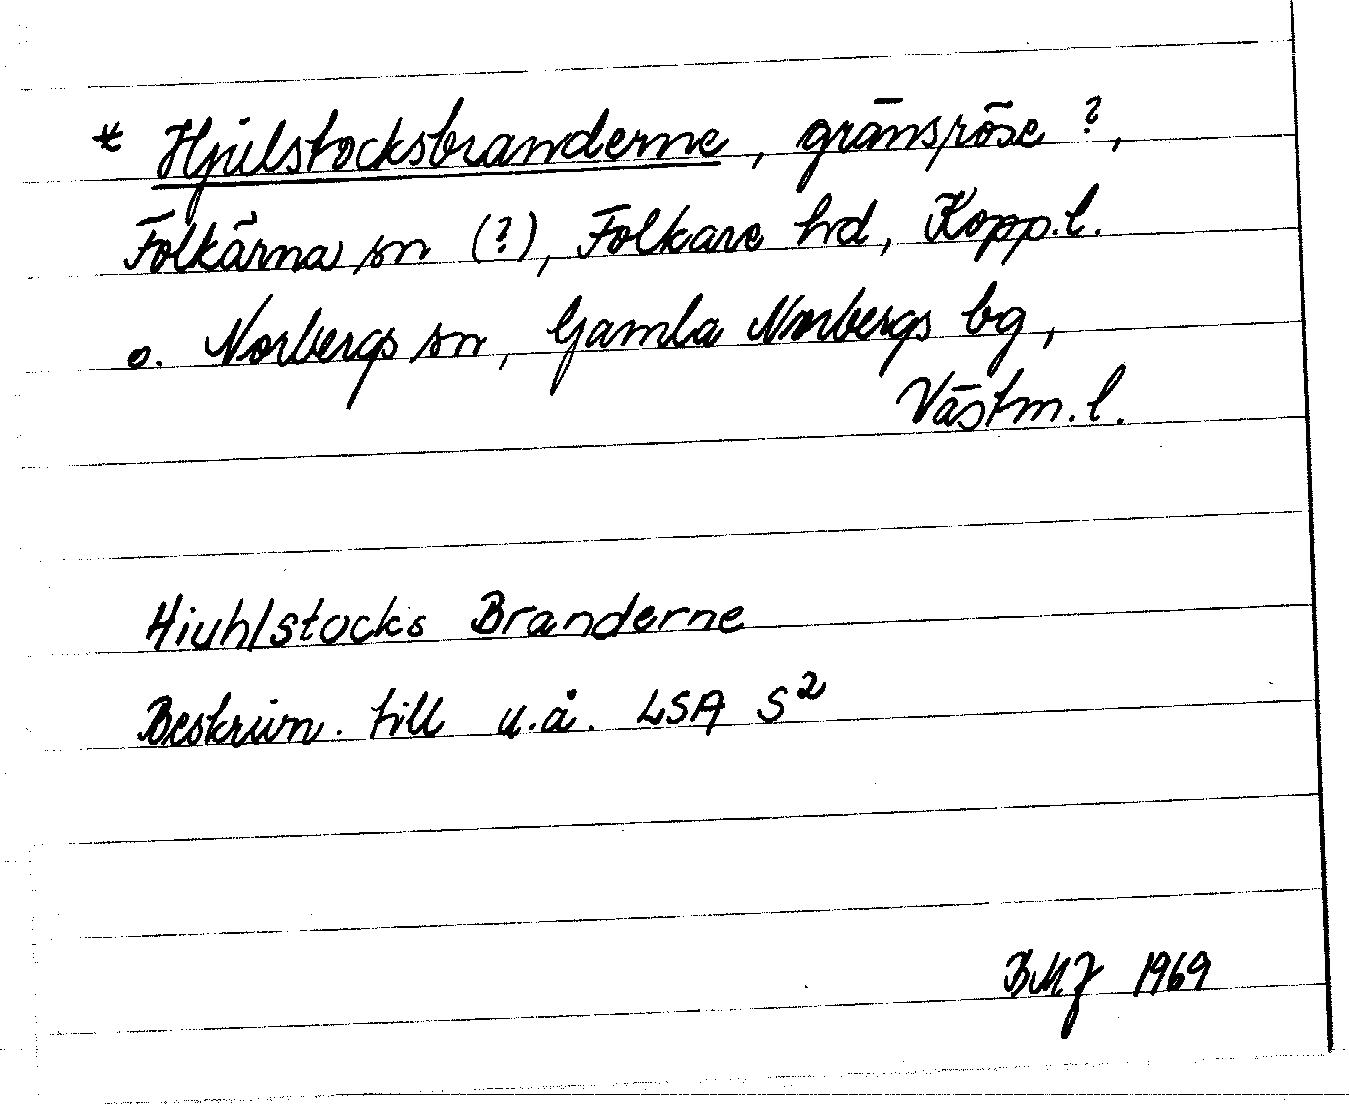 * Hjulstocksbranderne, gränsröse ?,
Folkärna sn (?), Folkare hd, Kopp.l.
o. Norbergs sn, Gamla Norbergs bg,
Västm.l.
Hiuhlstocks Branderne
Beskrivn. till u.å. LSA S²
BMJ 1969